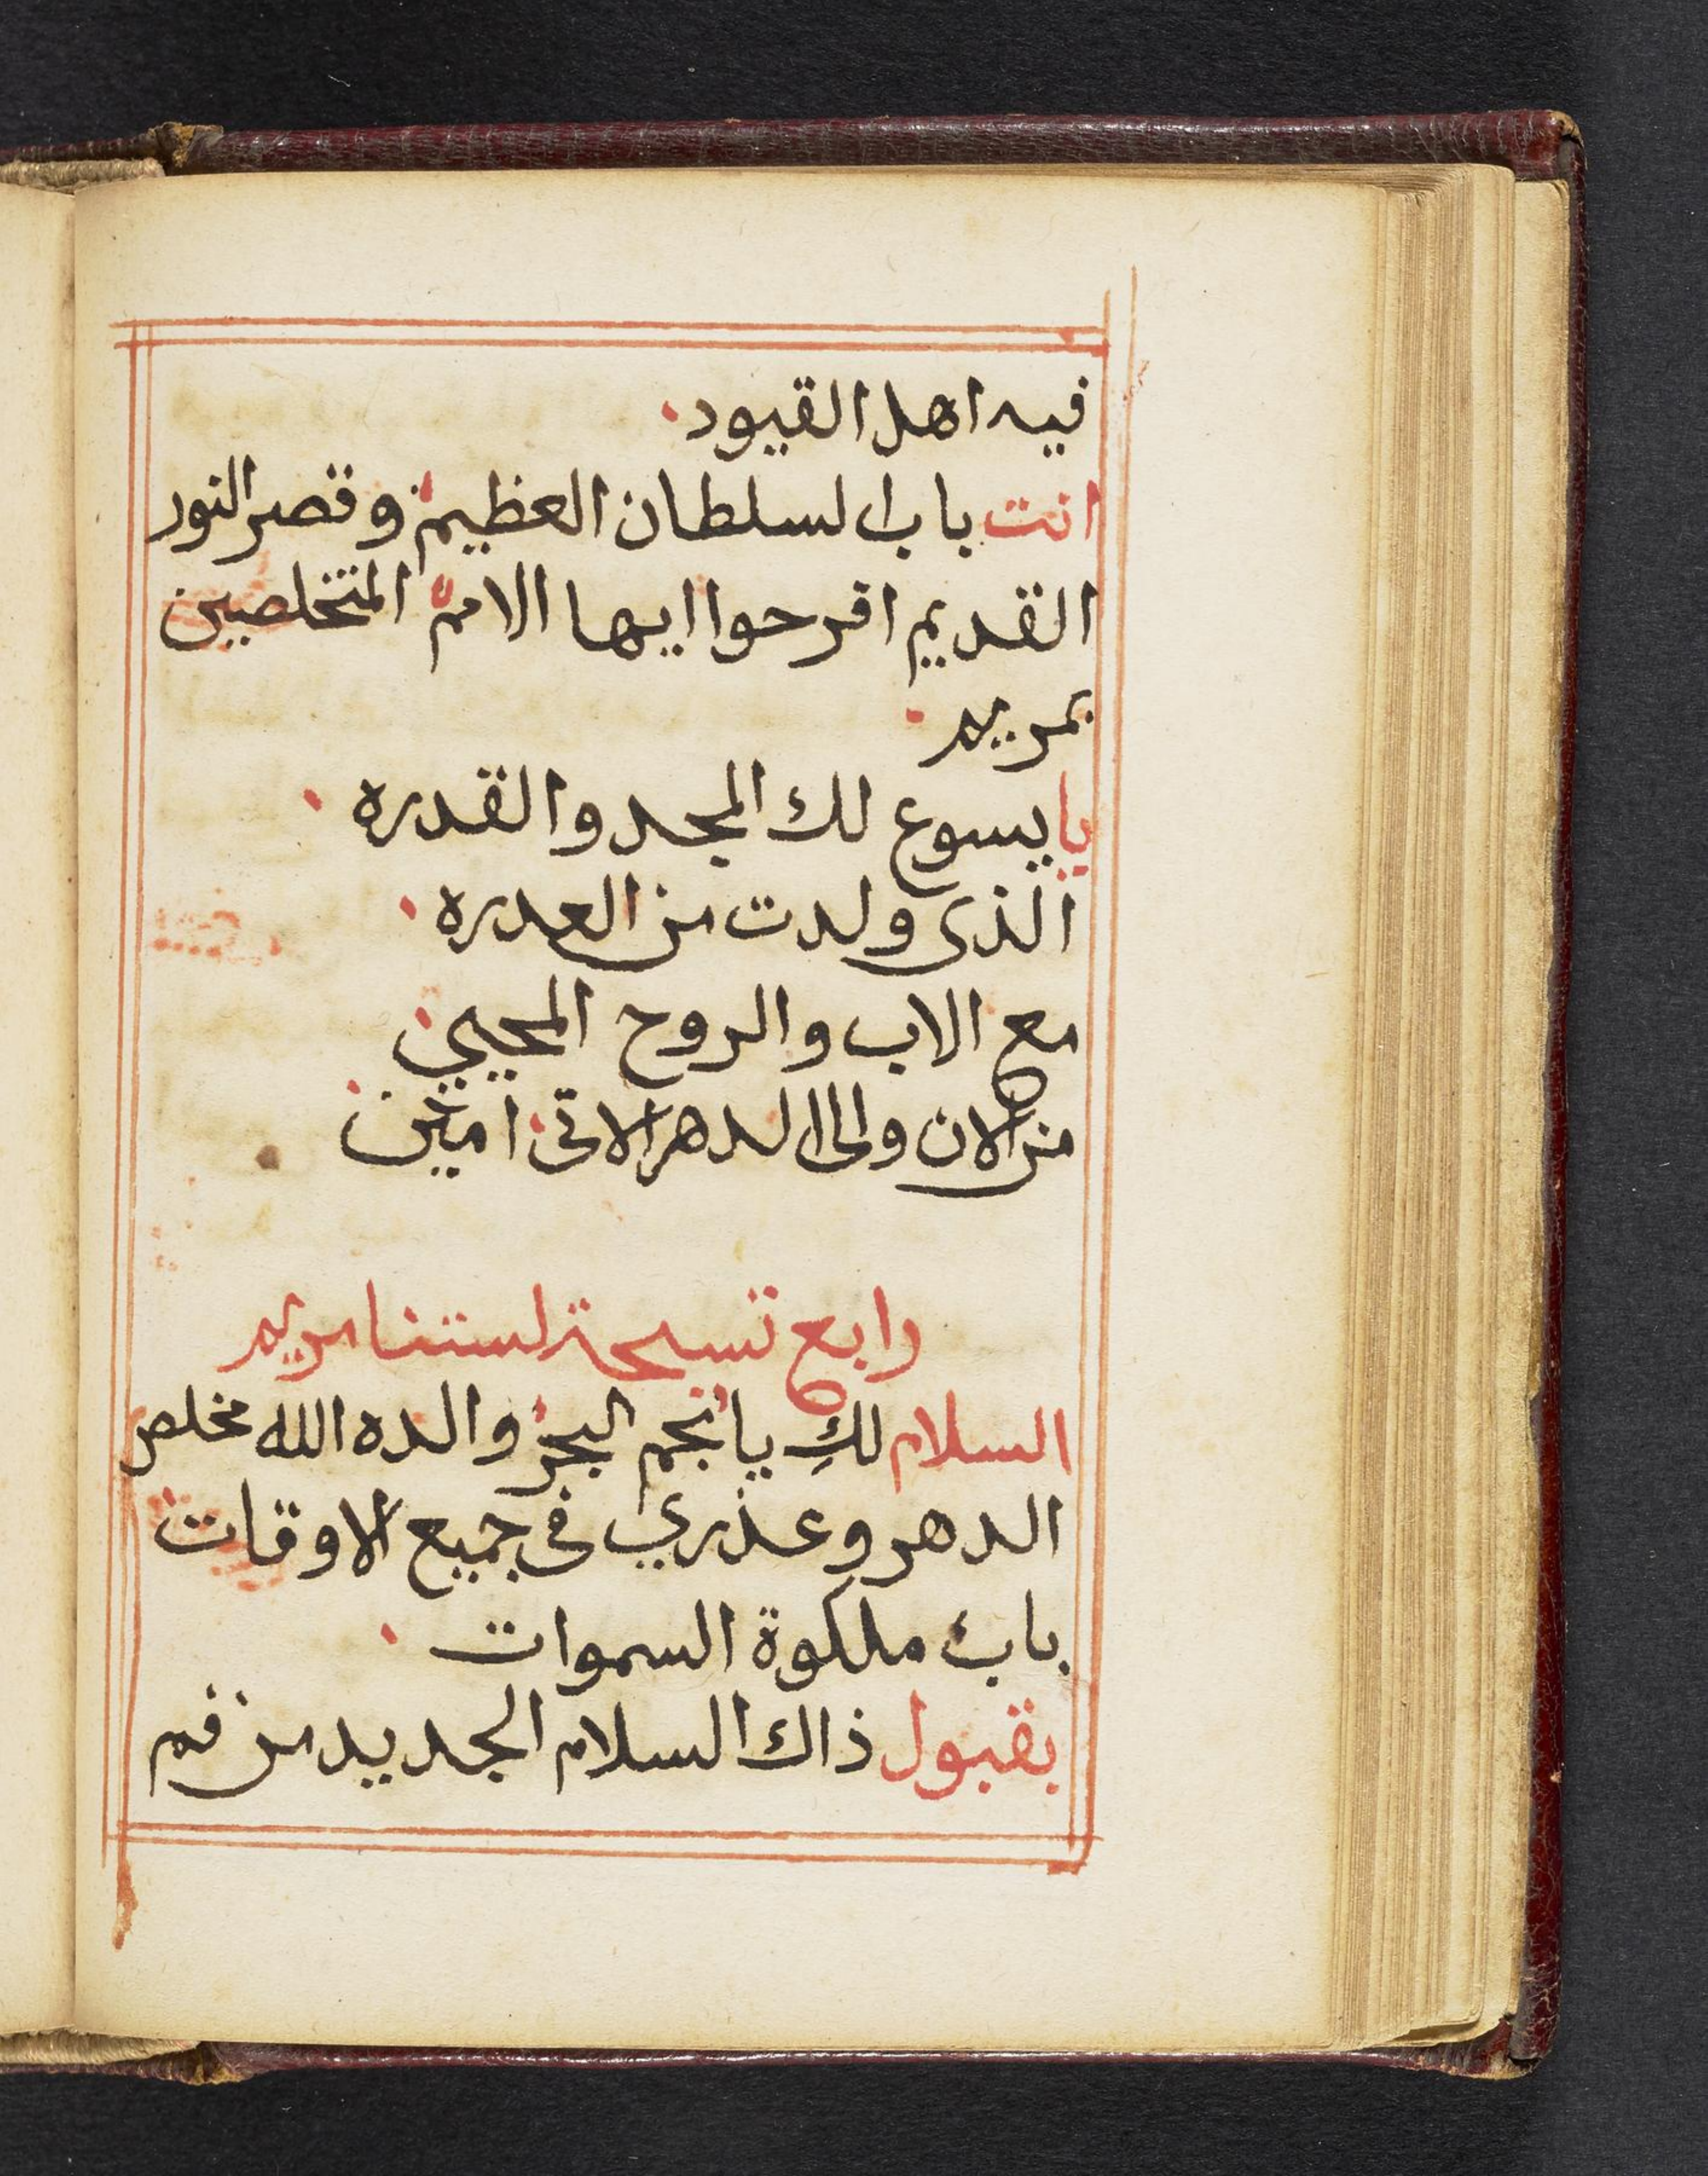 فيه اهل القيود
انت باب السلطان العظيم وقصر النور
القديم افرحوا ايها الامم المتخلصين
بمريم
يا يسوع لك المجد والقدره
الذى ولدت من العدره
مع الاب والروح المحيي
من الان والى الدهر الاتى امين
رابع تسبحة لستنا مريم
السلام لكِ يا نجم البحر والدة الله مخلص
الدهر وعذرى فى جميع الاوقات
باب ملكوة السموات
بقبول ذاك السلام الجديد من فم